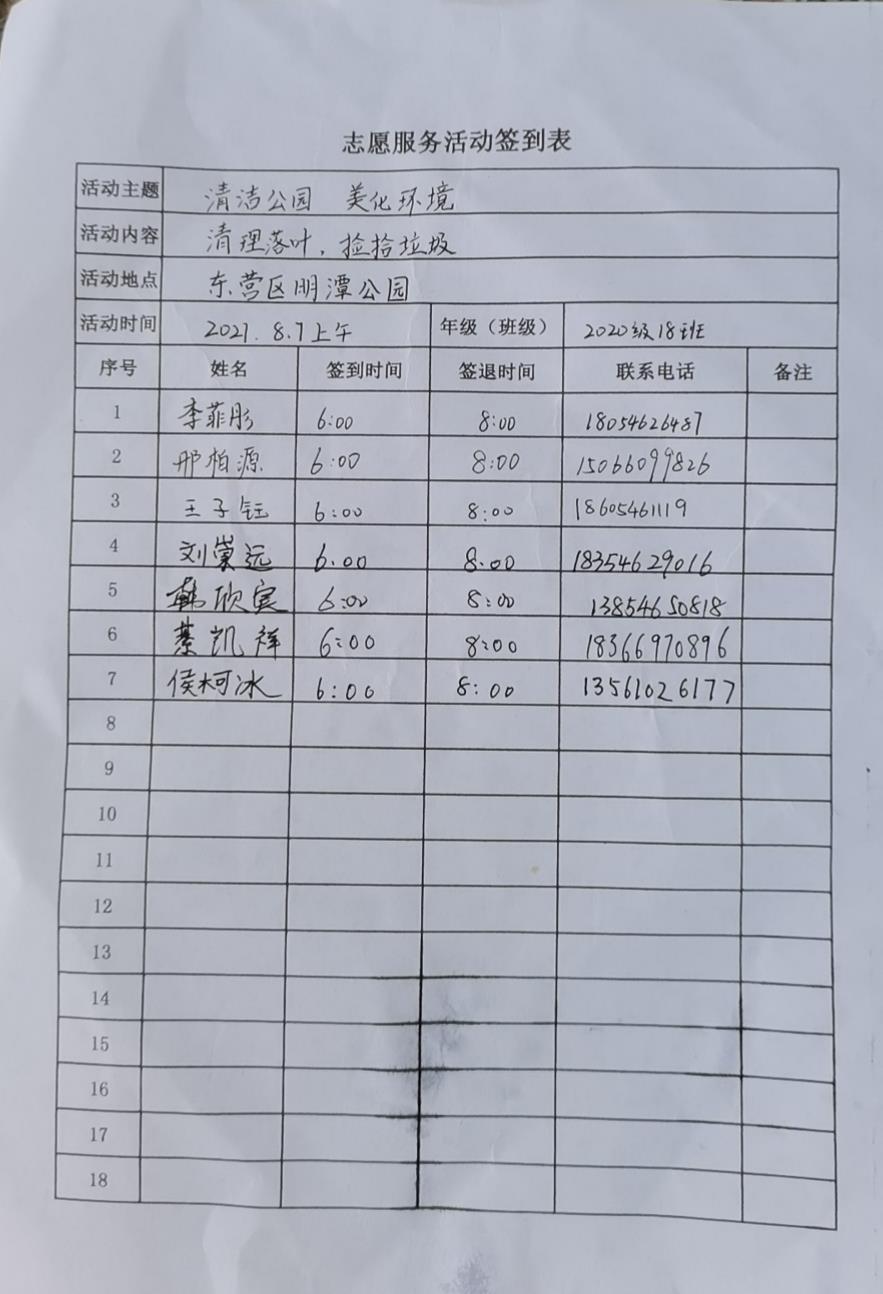 志愿服务活动签到表
活动主题 清洁公园 美化环境
活动内容 清理落叶，捡拾垃圾
活动地点 东营区明潭公园
活动时间 2021.8.7上午 年级（班级） 2020级18班
序号 姓名 签到时间 签退时间 联系电话 备注
1 李菲彤 6:00 8:00 18054626487
2 邢柏源 6:00 8:00 15066099826
3 王子钰 6:00 8:00 18605461119
4 刘崇远 6.00 8.00 18354629016
5 韩欣宾 6:00 8:00 13854650818
6 綦凯祥 6:00 8:00 18366970896
7 侯柯冰 6:00 8:00 13561026177
8
9
10
11
12
13
14
15
16
17
18